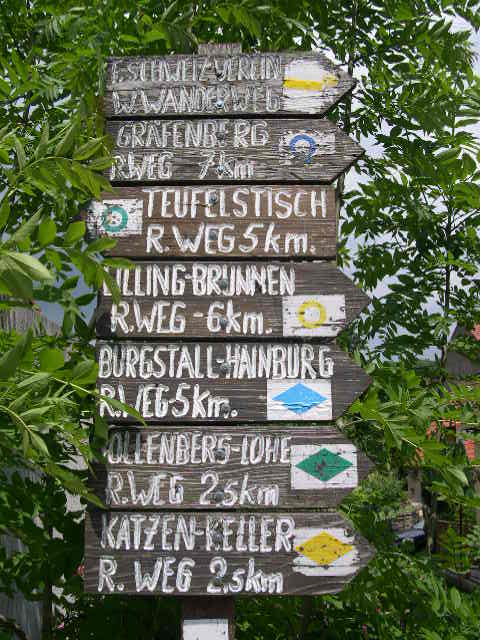 F.SCHWEIZVEREIN
W.WANDERWEG
GRÄFENBERG
R.WEG 7km
TEUFELSTISCH
R.WEG 5km.
LILLING-BRUNNEN
R.WEG - 6km.
BURGSTALL-HAINBURG
R.WEG 5km.
OLLENBERG-LOHE
R.WEG 2,5km
KATZEN-KELLER
R. WEG 2,5km